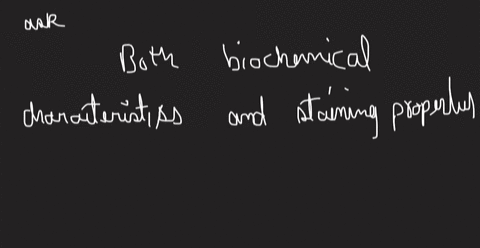 ask
Both biochemical
charaiteristiss and staining properties